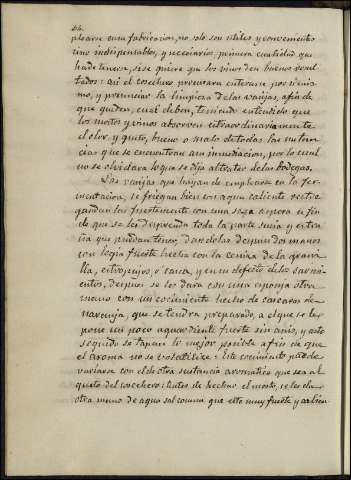 64.
plearse en su fabricacion, no solo son utiles y convenientes
sino indispensables, y necesarios, primera cualidad que
ha de tenerse, si se quiere qe los vinos den buenos resul-
tados: asi el cosechero procurara enterarse por si mis-
mo, y presenciar la limpieza de las vasijas, afin de
que queden, cual deben, teniendo entendido que
los mostos y vinos absorven estraordinariamente
el olor y gusto, bueno o malo de todas las substan-
cias que se encuentran a su inmediacion, por lo cual
no se olvidara lo que se dijo al tratar de las bodegas.
Las vasijas que hayan de emplearse en la fer-
mentacion, se friegan bien con agua caliente restre-
gandolas fuertemente con una soga aspera a fin
de que se les desprenda toda la parte sucia y estra-
ña que puedan tener, dandolas despues dos manos
con legia fuerte hecha con la ceniza de la grani-
lla, escobajos, o casca, y en su defecto de los sarmi-
entos, despues se les dara con una esponja otra
mano con un cocimiento hecho de cascaras de
naranja, que se tendra preparado, a el que se le
pone un poco aguardiente fuerte sin anis, y acto
seguido se tapan lo mejor posible a fin de que
el aroma no se volatilice: Este cocimiento puede
variarse con el de otra sustancia aromatica que sea al
gusto del cosechero: antes de hechar el mosto, se les da
otra mano de agua sal comun que este muy fuerte y calien